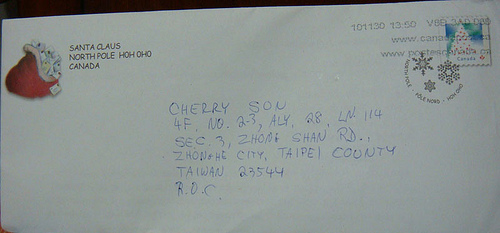 SANTA CLAUS
NORTH POLE HOH OHO
CANADA
101130 13:50 V8B
www.canad
www.postescanada
Canada
NORTH POLE · PÔLE NORD · HOH OHO
CHERRY SON
4F, NO. 2-3, ALY. 28, LN 114
SEC. 3, ZHONG SHAN RD.,
ZHONGHE CITY, TAIPEI COUNTY
TAIWAN 23544
R.O.C.